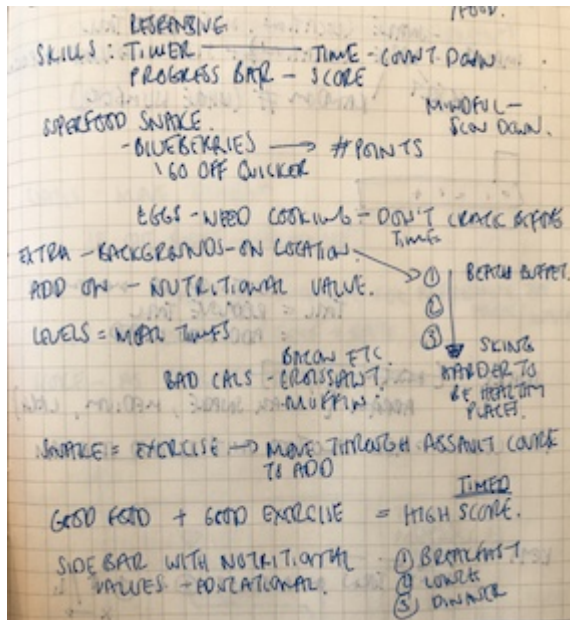 /FOOD.
RESPONSIVE
SKILLS: TIMER — TIME - COUNT DOWN
PROGRESS BAR - SCORE
MINDFUL -
SLOW DOWN.
SUPERFOOD SNAKE.
- BLUEBERRIES → # POINTS
GO OFF QUICKER
EGGS - NEED COOKING - DON'T CRACK BEFORE
TIMES
EXTRA - BACKGROUNDS - ON LOCATION.
① BEACH BUFFET.
ADD ON - NUTRITIONAL VALUE.
②
LEVELS = MEAL TIMES
③ SKIING
BACON ETC.
HARDER TO
BAD CALS - CROISSANT.
BE HEALTHY
- MUFFIN.
PLACES.
SNAKE = EXERCISE → MOVE THROUGH ASSAULT COURSE
TO ADD
TIMED
GOOD FOOD + GOOD EXERCISE = HIGH SCORE.
SIDE BAR WITH NUTRITIONAL
① BREAKFAST
VALUES - EDUCATIONAL.
② LUNCH
③ DINNER